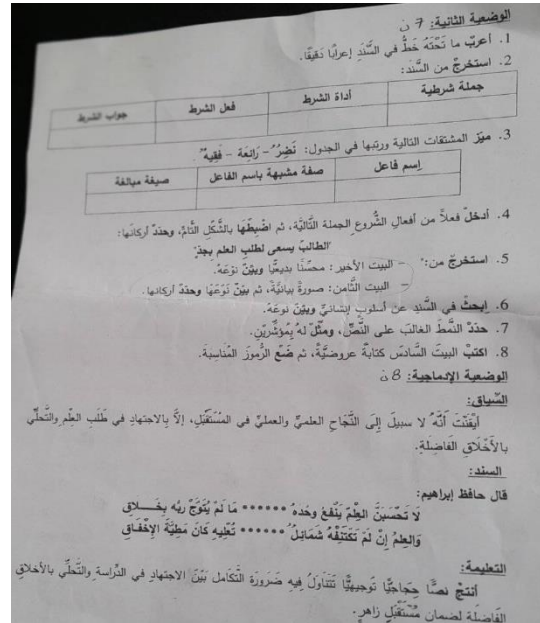 الوضعية الثانية: 7 ن
1. أعربْ ما تَحْتَهُ خَطٌّ في السَّنَدِ إعرابًا دَقيقًا.
2. استخرجْ من السَّند:
جملة شرطية أداة الشرط فعل الشرط جواب الشرط
3. ميّز المشتقات التالية ورتبها في الجدول: نَضِرٌ - رَائِعَة - فَقِيهٌ.
إسم فاعل صفة مشبهة باسم الفاعل صيغة مبالغة
4. أدخلْ فعلاً من أفعالِ الشُّروع الجملة التَّاليَّة، ثم اضْبِطْهَا بالشَّكْلِ التَّامِّ، وحَدّدْ أركانَها:
"الطالبُ يسعى لطلبِ العلم بجدٍ"
5. استخرجْ من: - البيت الأخير: محسّنًا بديعيًّا وبيّنْ نوعَهُ.
- البيت الثَّامن: صورةً بيانيَّةً، ثم بيّنْ نَوْعَهَا وحدّدْ أركانها.
6. إبحثْ في السَّند عن أسلوبٍ إنشائيٍّ وبيّنْ نوعَهُ.
7. حدّدْ النَّمطَ الغالبَ على النَّصِّ، ومثِّلْ لهُ بِمُؤشِّريْنِ.
8. اكتبْ البيتَ السَّادسَ كتابةً عروضيَّةً، ثم ضَعْ الرُّموزَ المُنَاسِبَةَ.
الوضعية الإدماجية: 8 ن
السّياق:
أيْقَنْتَ أنَّهُ لا سبيلَ إلَى النَّجَاحِ العلميِّ والعمليِّ في المسْتَقْبَلِ، إلاَّ بِالاجتهادِ في طَلَبِ العِلْمِ والتَّحَلِّي
بالأَخْلاَقِ الفَاضِلَةِ.
السند:
قال حافظ إبراهيم:
لاَ تَحْسَبَنَّ العِلْمَ يَنْفَعُ وحْدهُ •••••• مَا لَمْ يُتَوَّجْ رَبُّه بِخَـــــلاقِ
وَالعِلمُ إنْ لمْ تَكْتَنِفْهُ شَمَائِلُ •••••• تُعْلِيهِ كَانَ مَطِيَّةَ الإخْفَاقِ
التعليمة:
أنتجْ نصًّا حِجَاجيًّا تَوجيهيًّا تَتَنَاوَلُ فِيهِ ضَرُورَةَ التَّكَامل بَيْنَ الاجتهادِ في الدِّراسةِ والتَّحَلِّي بالأخلاقِ
الفَاضلَةِ لضمانِ مُسْتَقْبَلٍ زاهرٍ.